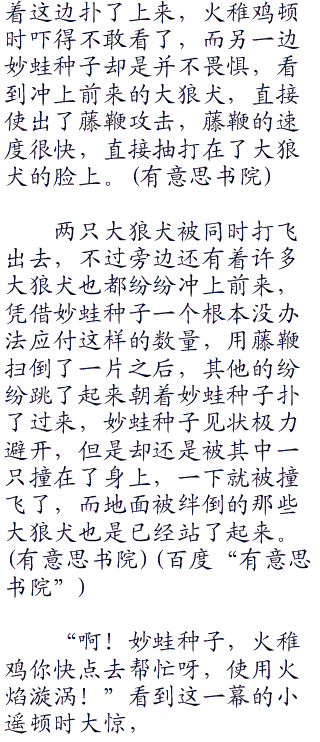 着这边扑了上来，火稚鸡顿
时吓得不敢看了，而另一边
妙蛙种子却是并不畏惧，看
到冲上前来的大狼犬，直接
使出了藤鞭攻击，藤鞭的速
度很快，直接抽打在了大狼
犬的脸上。(有意思书院)
两只大狼犬被同时打飞
出去，不过旁边还有着许多
大狼犬也都纷纷冲上前来，
凭借妙蛙种子一个根本没办
法应付这样的数量，用藤鞭
扫倒了一片之后，其他的纷
纷跳了起来朝着妙蛙种子扑
了过来，妙蛙种子见状极力
避开，但是却还是被其中一
只撞在了身上，一下就被撞
飞了，而地面被绊倒的那些
大狼犬也是已经站了起来。
(有意思书院)(百度“有意思
书院”)
“啊！妙蛙种子，火稚
鸡你快点去帮忙呀，使用火
焰漩涡！”看到这一幕的小
遥顿时大惊，